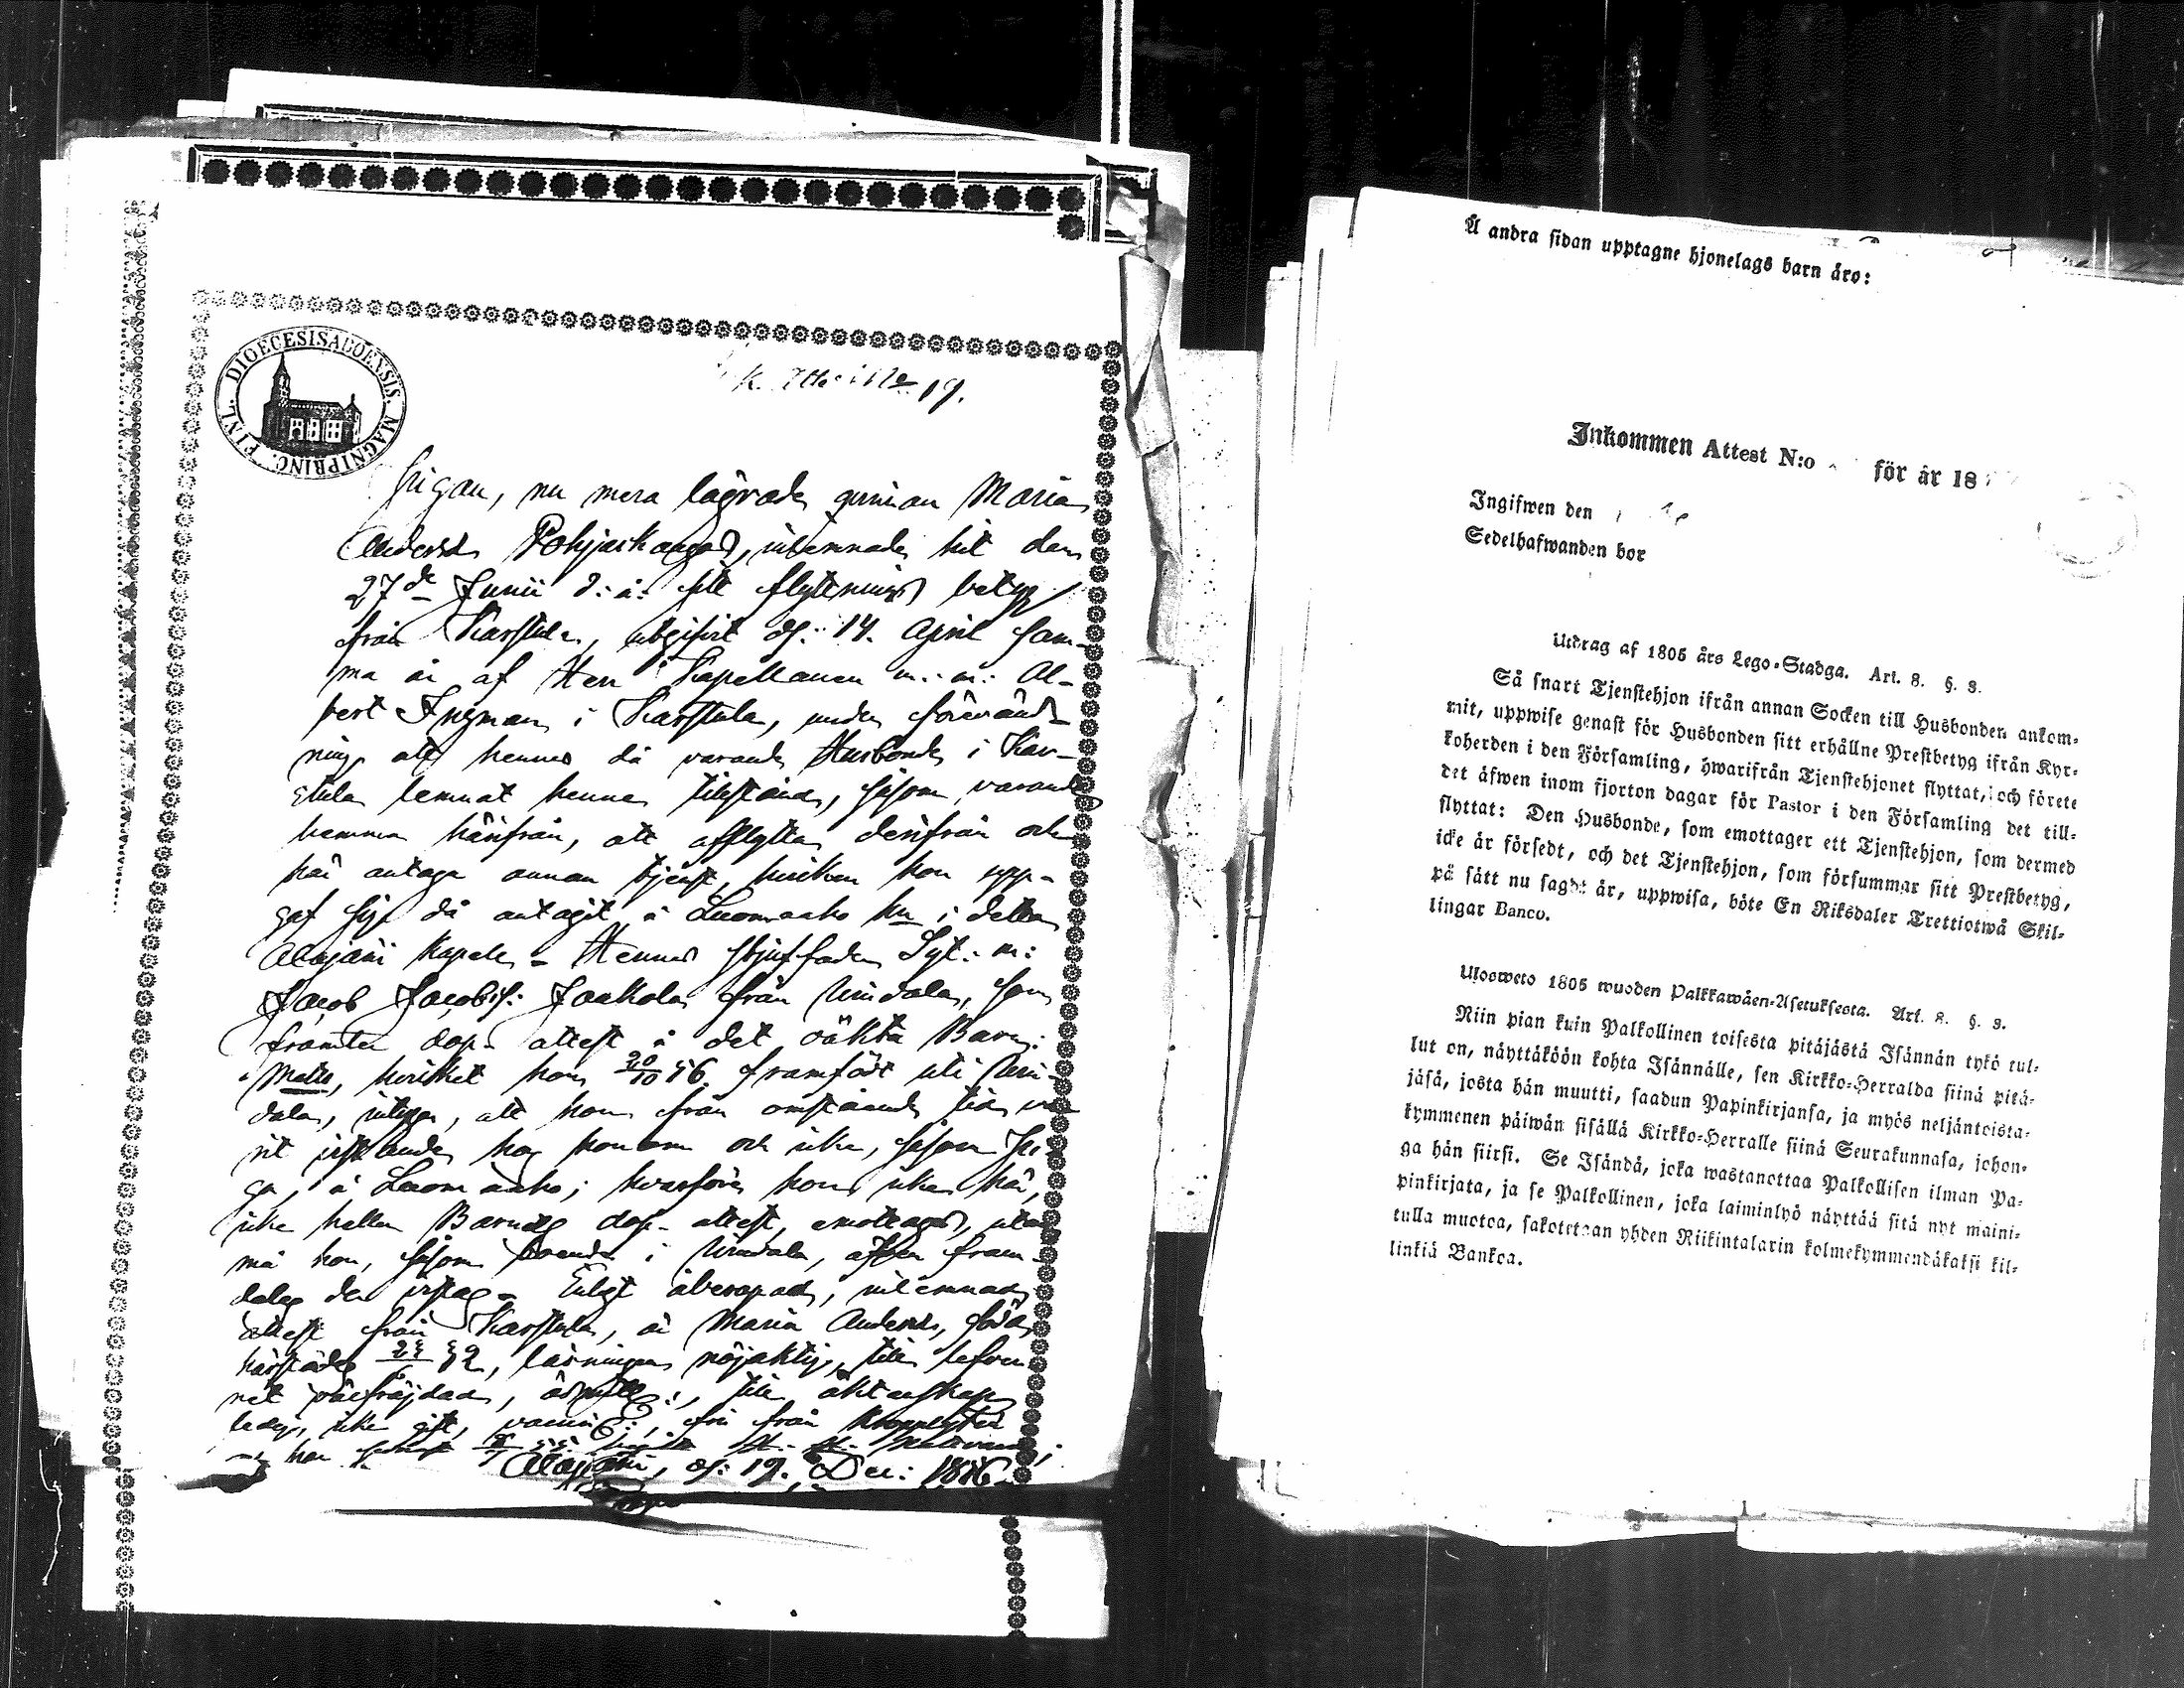 DIOECESIS ABOENSIS. MAGNI PRINC. FINL.
19.
Pigan, nu mera lägrade qvinnan Maria
Andersd. Pohjaskangas, inlemnade hit den
27de Junii d: å: sitt flyttnings betyg
från Karstula, utgifvit d: 14. April sam-
ma år af Herr Kapellanen m: m: Al-
bert Ingman i Karstula, under förevänd-
ning att hennes då varande Husbonde i Kar-
stula lemnat henne tillstånd, såsom varande
hemma härifrån, att afflytta derifrån och
här antaga annan tjenst, hvilken hon upp-
gaf sig då antagit å Luomaaho hn i detta
Alajärvi Kapell - Hennes styffader Syt: m:
Jacob Jacobss: Jaakola från Vindala, som
framter dop- attest å det oäkta Barn:
Matts, hvilket hon 20/10 56 framfödt uti Vin-
dala, intygar, att hon från omstående tid va-
rit vistande hos honom och icke, såsom Pi-
ga, å Luomaaho; hvarföre hon icke här,
icke heller Barnets dop- attest, emottages, utan
må hon, såsom boende i Vindala, äfven fram-
deles der vistas - Enligt åberopade, inlemnade
attest från Karstula, är Maria Andersd., född
härstädes 32, läsningen nöjaktig, till lefver-
net välfräjdad, till äktenskap
ledig, icke gift, vaccin:, fri från
Alajärvi, d: 19. Dec: 1856.
Å andra sidan upptagne hjonelags barn äro:
Inkommen Attest N:o för år 18
Ingifwen den
Sedelhafwanden bor
Utdrag af 1805 års Lego-Stadga. Art. 8. §. 3.
Så snart Tjenstehjon ifrån annan Socken till Husbonden ankom-
mit, uppwise genast för Husbonden sitt erhållne Prestbetyg ifrån Kyr-
koherden i den Församling, hwarifrån Tjenstehjonet flyttat, och förete
det äfwen inom fjorton dagar för Pastor i den Församling det till-
flyttat: Den Husbonde, som emottager ett Tjenstehjon, som dermed
icke är försedt, och det Tjenstehjon, som försummar sitt Prestbetyg,
på sätt nu sagdt är, uppwisa, böte En Riksdaler Trettiotwå Skil-
lingar Banco.
Ulosweto 1805 wuoden Palkkawäen-Asetuksesta. Art. 8. §. 3.
Niin pian kuin Palkollinen toisesta pitäjästä Isännän tykö tul-
lut on, näyttäköön kohta Isännälle, sen Kirkko-Herralda siinä pitä-
jäsä, josta hän muutti, saadun Papinkirjansa, ja myös neljäntoista-
kymmenen päiwän sisällä Kirkko-Herralle siinä Seurakunnasa, johon-
ga hän siirsi. Se Isändä, joka wastanottaa Palkollisen ilman Pa-
pinkirjata, ja se Palkollinen, joka laiminlyö näyttää sitä nyt maini-
tulla muotoa, sakotetaan yhden Riikintalarin kolmekymmendäkaksi kil-
linkiä Bankoa.